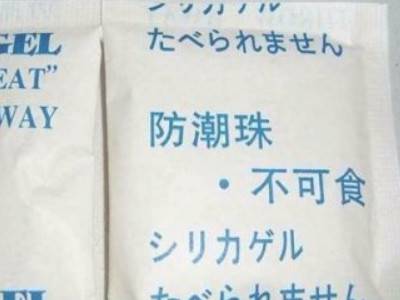 GEL
EAT”
WAY
GEL
シリカゲル
たべられません
防潮珠
・不可食
シリカゲル
たべられません